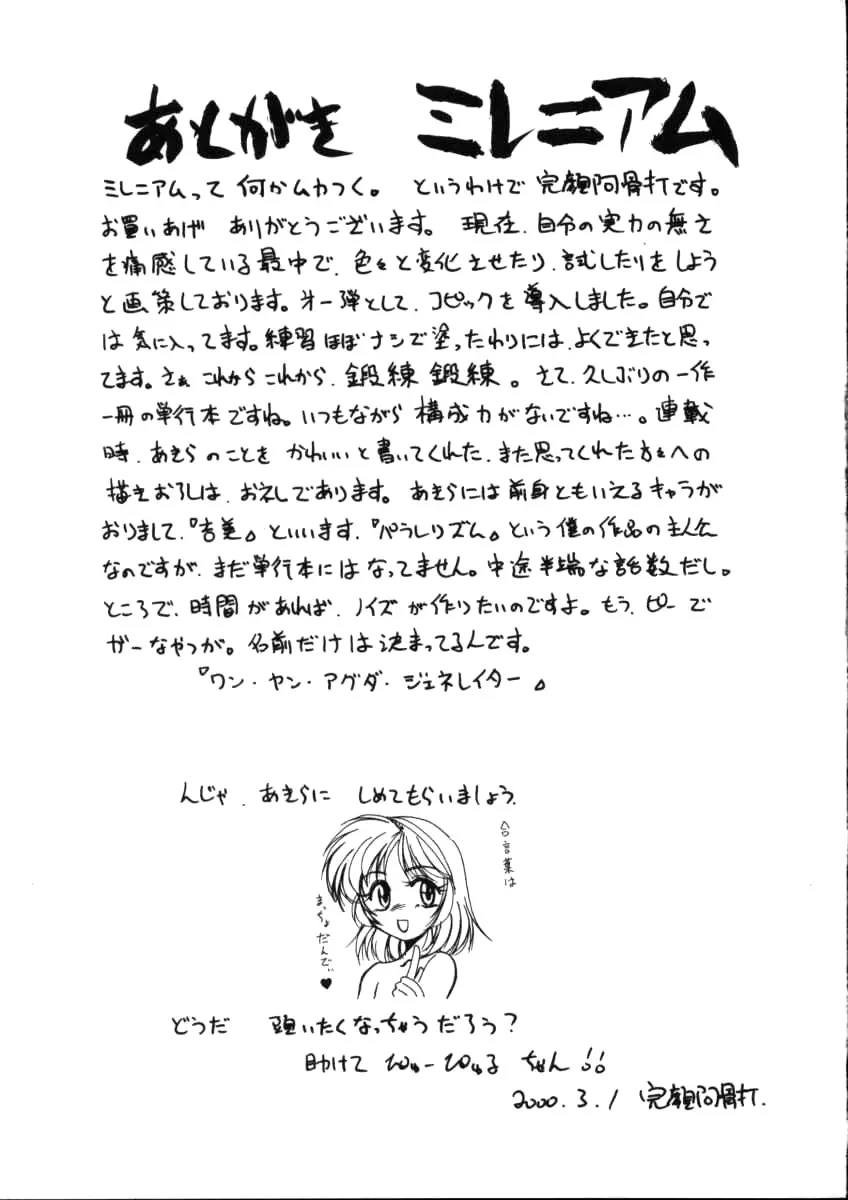 あとがき ミレニアム
ミレニアムって 何かムカつく。 というわけで 完顔阿骨打です。
お買いあげ ありがとうございます。 現在、自分の実力の無さ
を痛感している最中で、色々と変化させたり、試したりをしよう
と画策しております。才一弾として、コピックを導入しました。自分で
は気に入ってます。練習ほぼナシで塗ったわりには、よくできたと思っ
てます。さぁ これから これから、鍛練 鍛練。さて、久しぶりの一作
一冊の単行本ですね。いつもながら 構成力がないですね…。連載
時、あきらのことを かわいいと書いてくれた、また思ってくれた方々への
描きおろしは、おえしであります。 あきらには前身ともいえるキャラが
おりまして、『吉美』といいます、『パラレリズム』という僕の作品の主人公
なのですが、まだ単行本にはなってません。中途半端な話数だし。
ところで、時間があれば、ノイズが作りたいのですよ。もう、ピーで
ガーなやつが。名前だけは決まってるんです。
『ワン・ヤン・アグダ・ジェネレイター』
んじゃ、あきらに しめてもらいましょう、
合言葉は
まっちょだんで♥
どうだ 抱いたくなっちゃうだろう?
助けて ひゅーひゅる ちゃん!!
2000.3.1 完顔阿骨打.